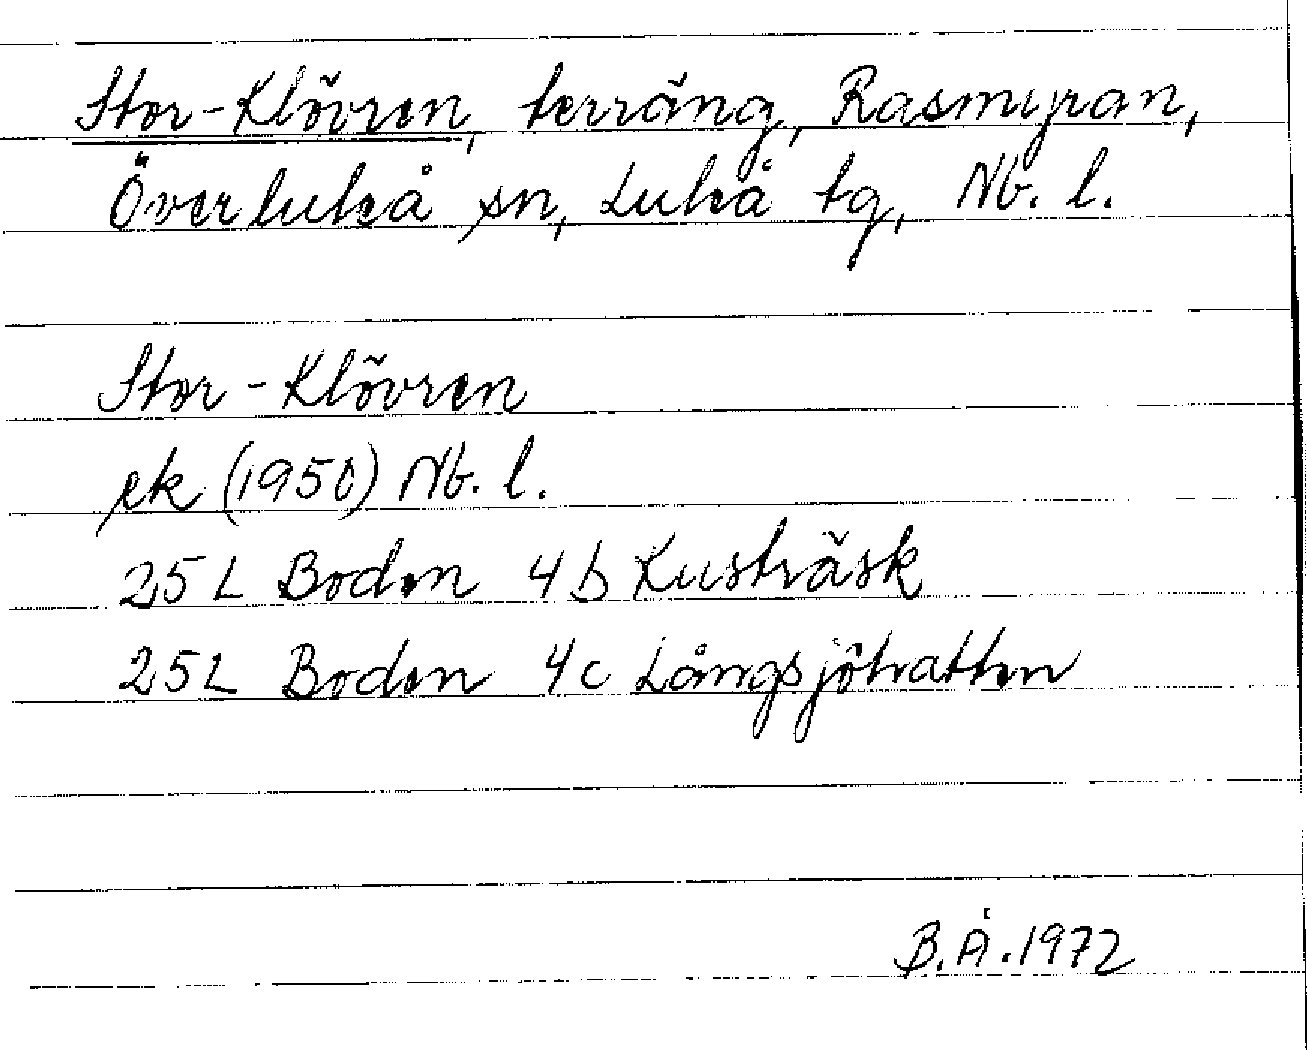 Stor-Klövren, terräng, Rasmyran,
Överluleå sn, Luleå tg, Nb. l.
Stor-Klövren
ek (1950) Nb. l.
25 L Boden 4 b Kusträsk
25 L Boden 4c Långsjöhatten
B.Å. 1972